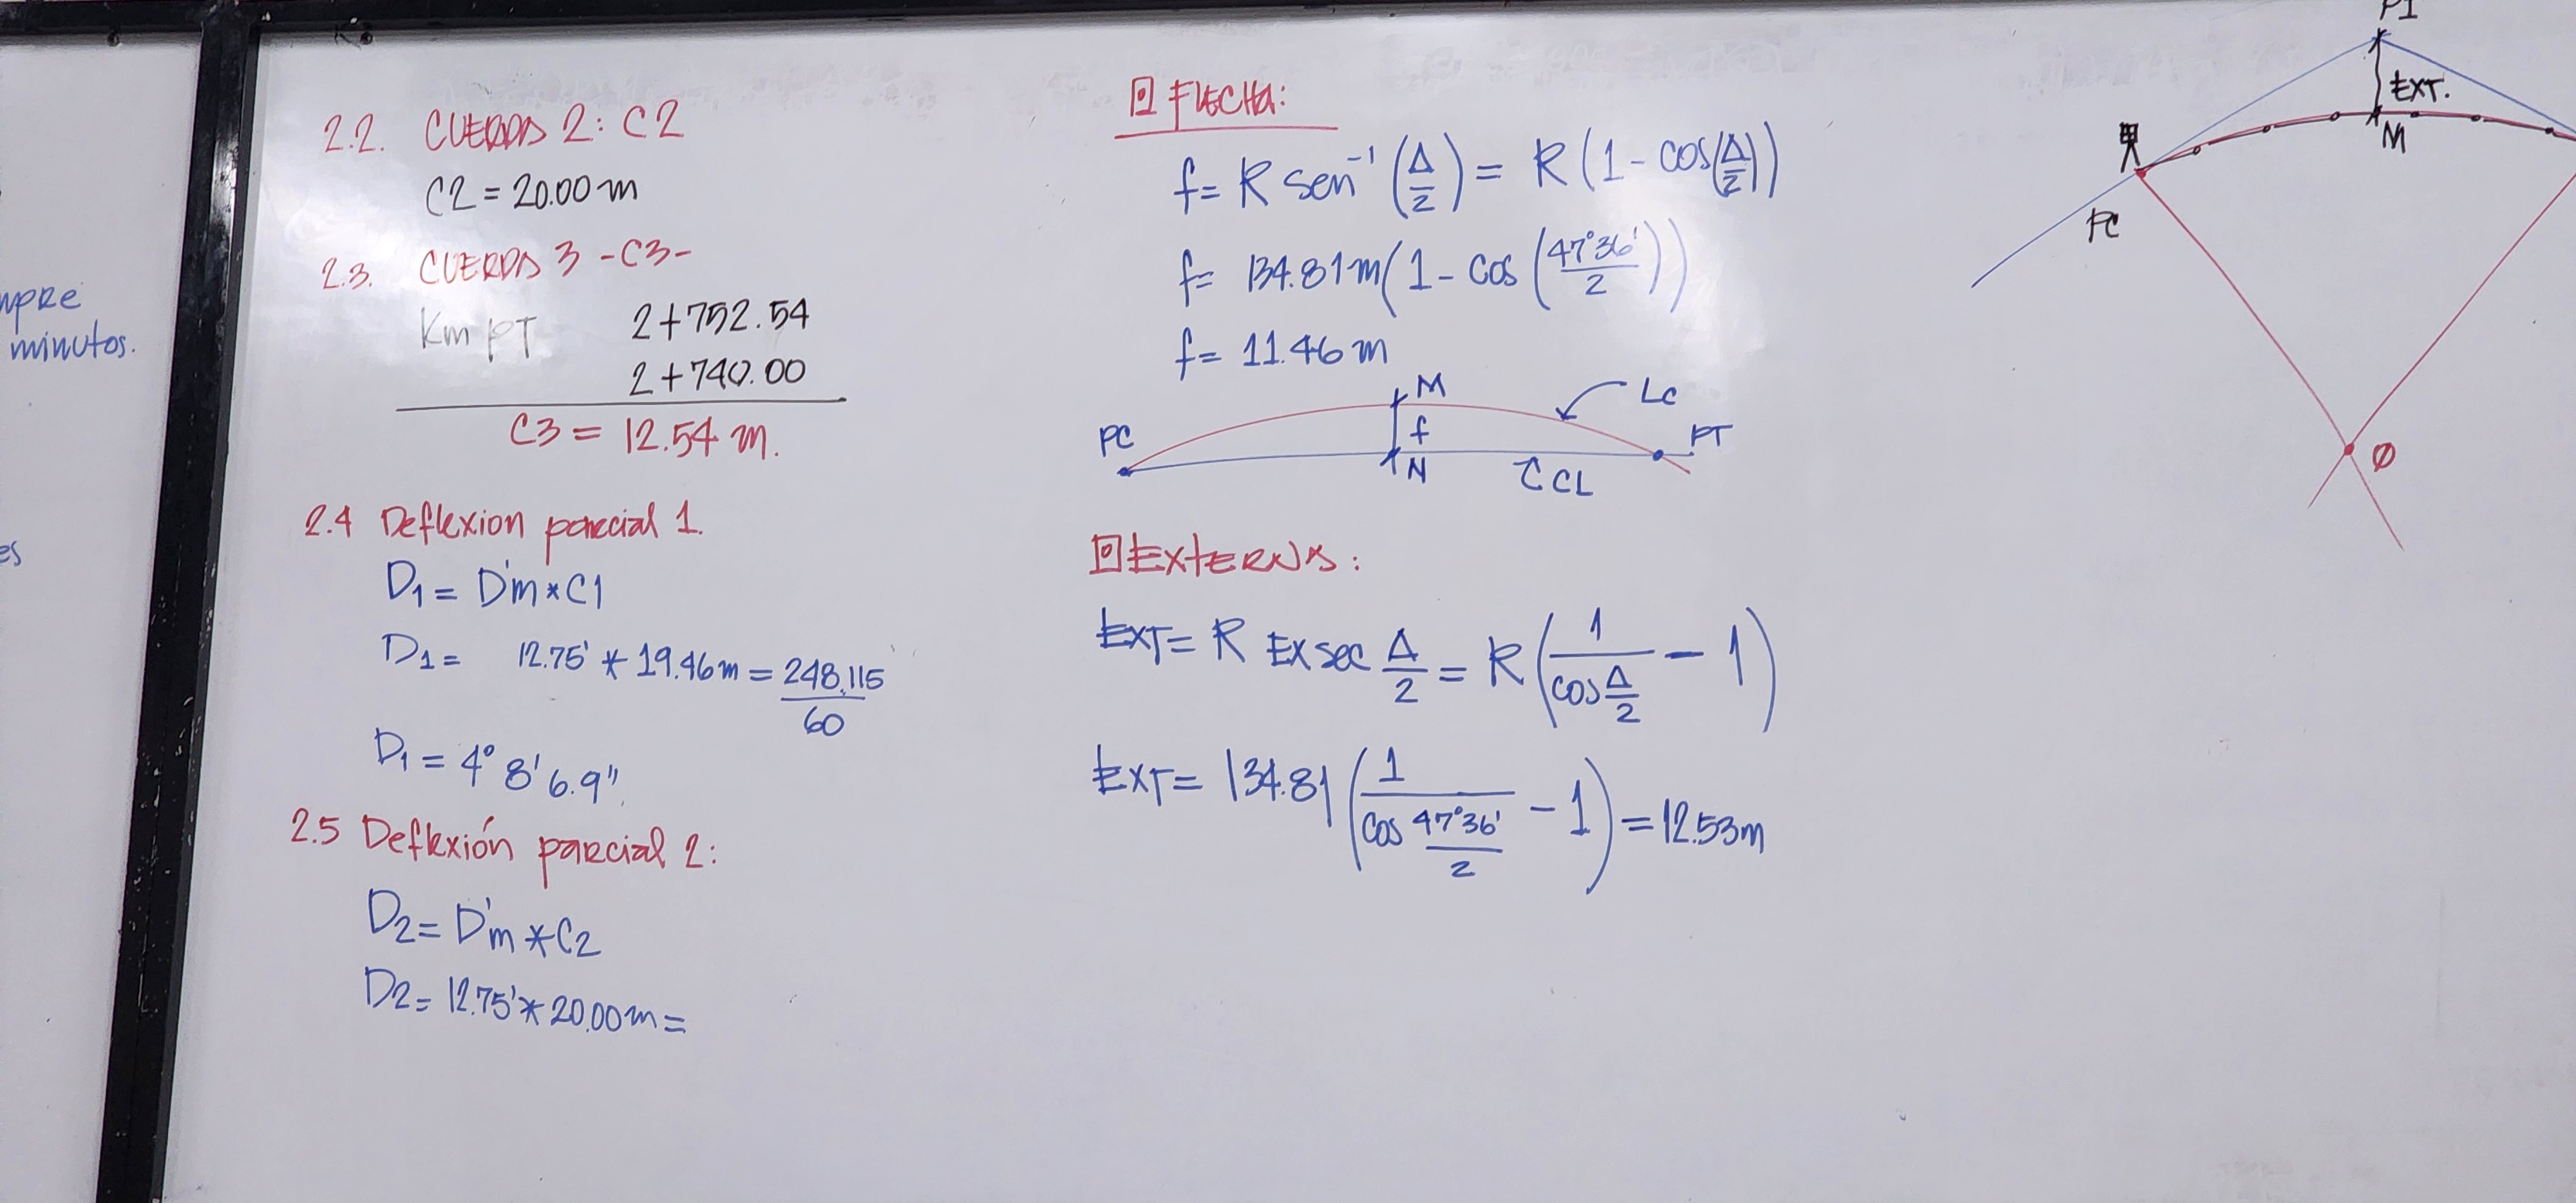 mpre
minutos.
es
2.2. CUERDA 2: C2
C2 = 20.00 m
2.3. CUERDA 3 -C3-
Km PT 2+752.54
2+740.00
C3 = 12.54 m.
2.4 Deflexion parcial 1.
D1 = D'm * C1
D1 = 12.75' * 19.46m = 248.115 / 60
D1 = 4° 8' 6.9"
2.5 Deflexión parcial 2:
D2 = D'm * C2
D2 = 12.75' * 20.00m =
FLECHA:
f = R sen⁻¹ (Δ/2) = R (1 - cos(Δ/2))
f = 134.81m (1 - cos (47°36'/2))
f = 11.46 m
M
Lc
PC
f
PT
N
CL
EXTERNA:
EXT = R EXsec Δ/2 = R (1/cos Δ/2 - 1)
EXT = 134.81 (1/cos 47°36'/2 - 1) = 12.53m
PI
EXT.
M
PC
Ø